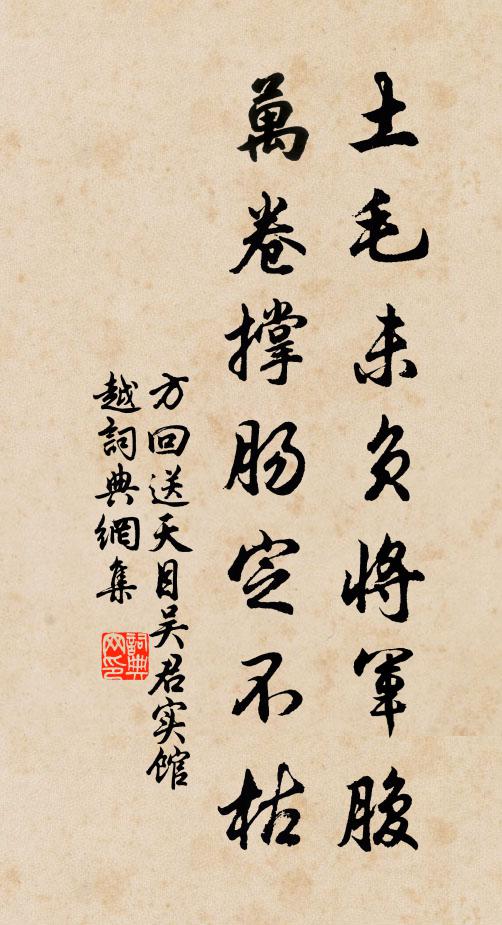 土毛未負將軍腹
萬卷撐腸定不枯
方回送天目吴君实馆
越詞典網集
詞典網印